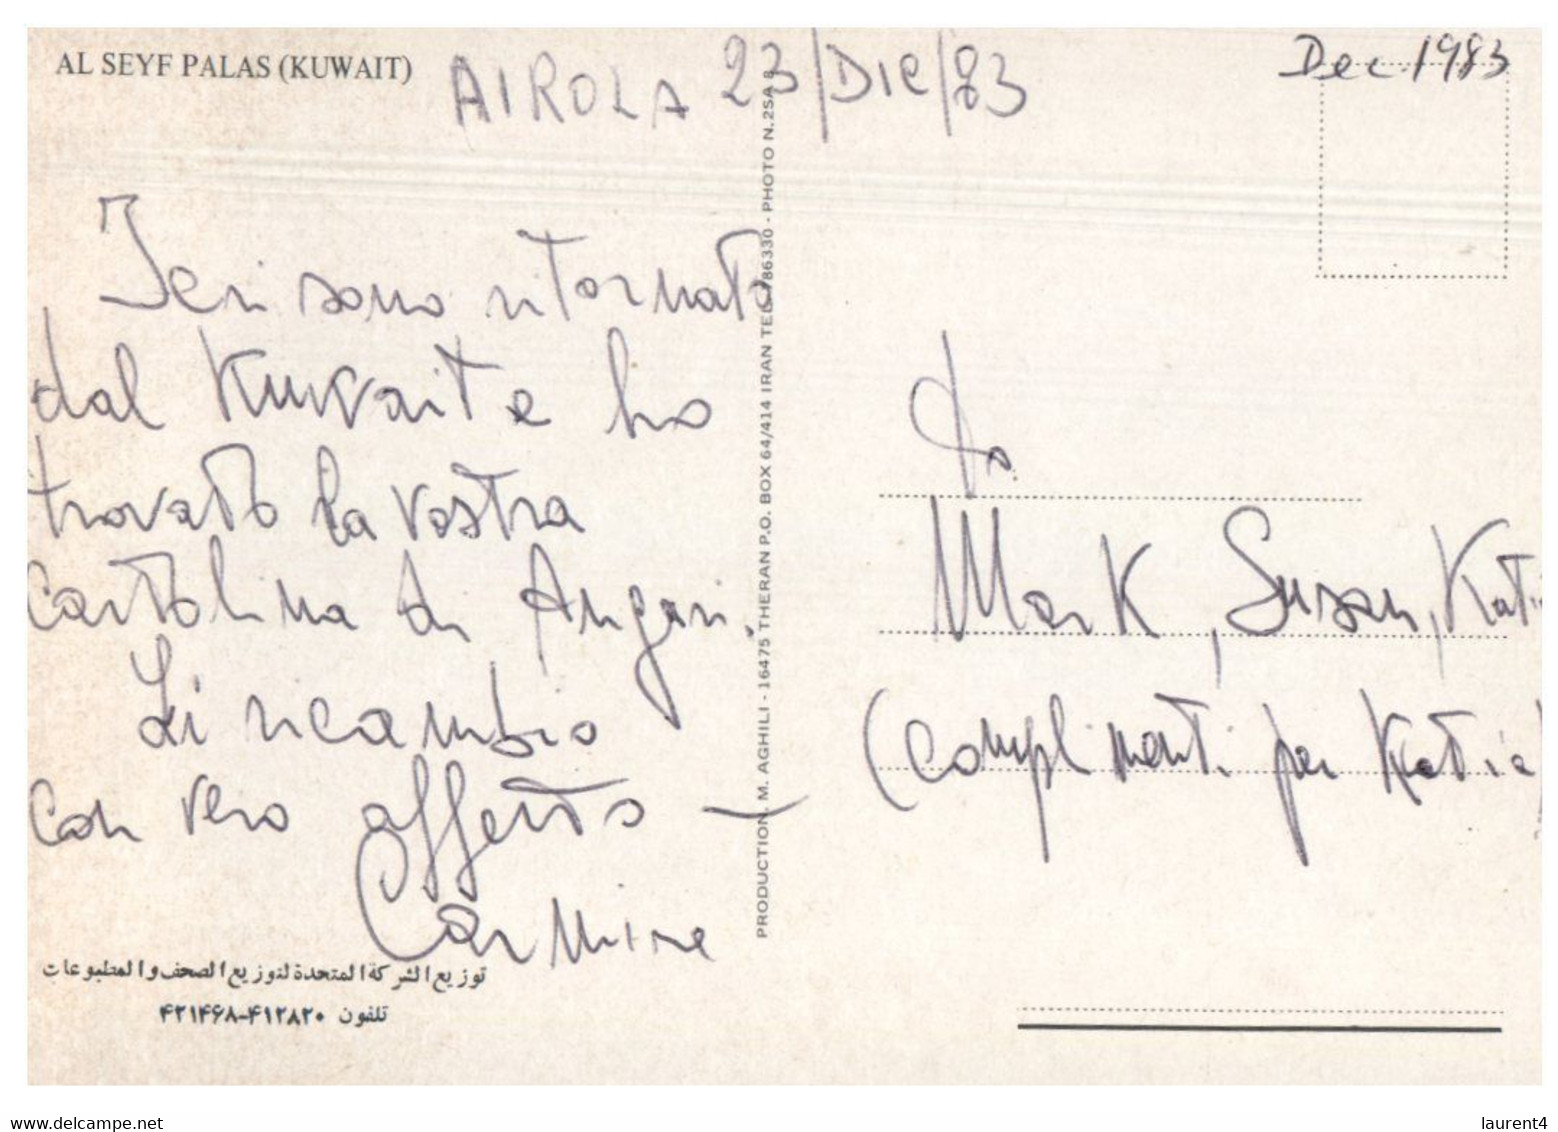 AL SEYF PALAS (KUWAIT)
AIROLA 23/DIC/83
Dec. 1983
Ieri sono ritornato
dal Kuwait e ho
trovato la vostra
cartolina di
Li ricambio
con vero affetto —
Carmine
PRODUCTION. M. AGHILI - 16475 THERAN P.O. BOX 64/414 IRAN TEL. 786330 - PHOTO N.2SA 8
Mark, Susan,
(complimenti per Katia)
توزيع الشركة المتحدة لتوزيع الصحف والمطبوعات
تلفون ۴۱۲۸۲۰-۴۲۱۴۶۸
www.delcampe.net
laurent4